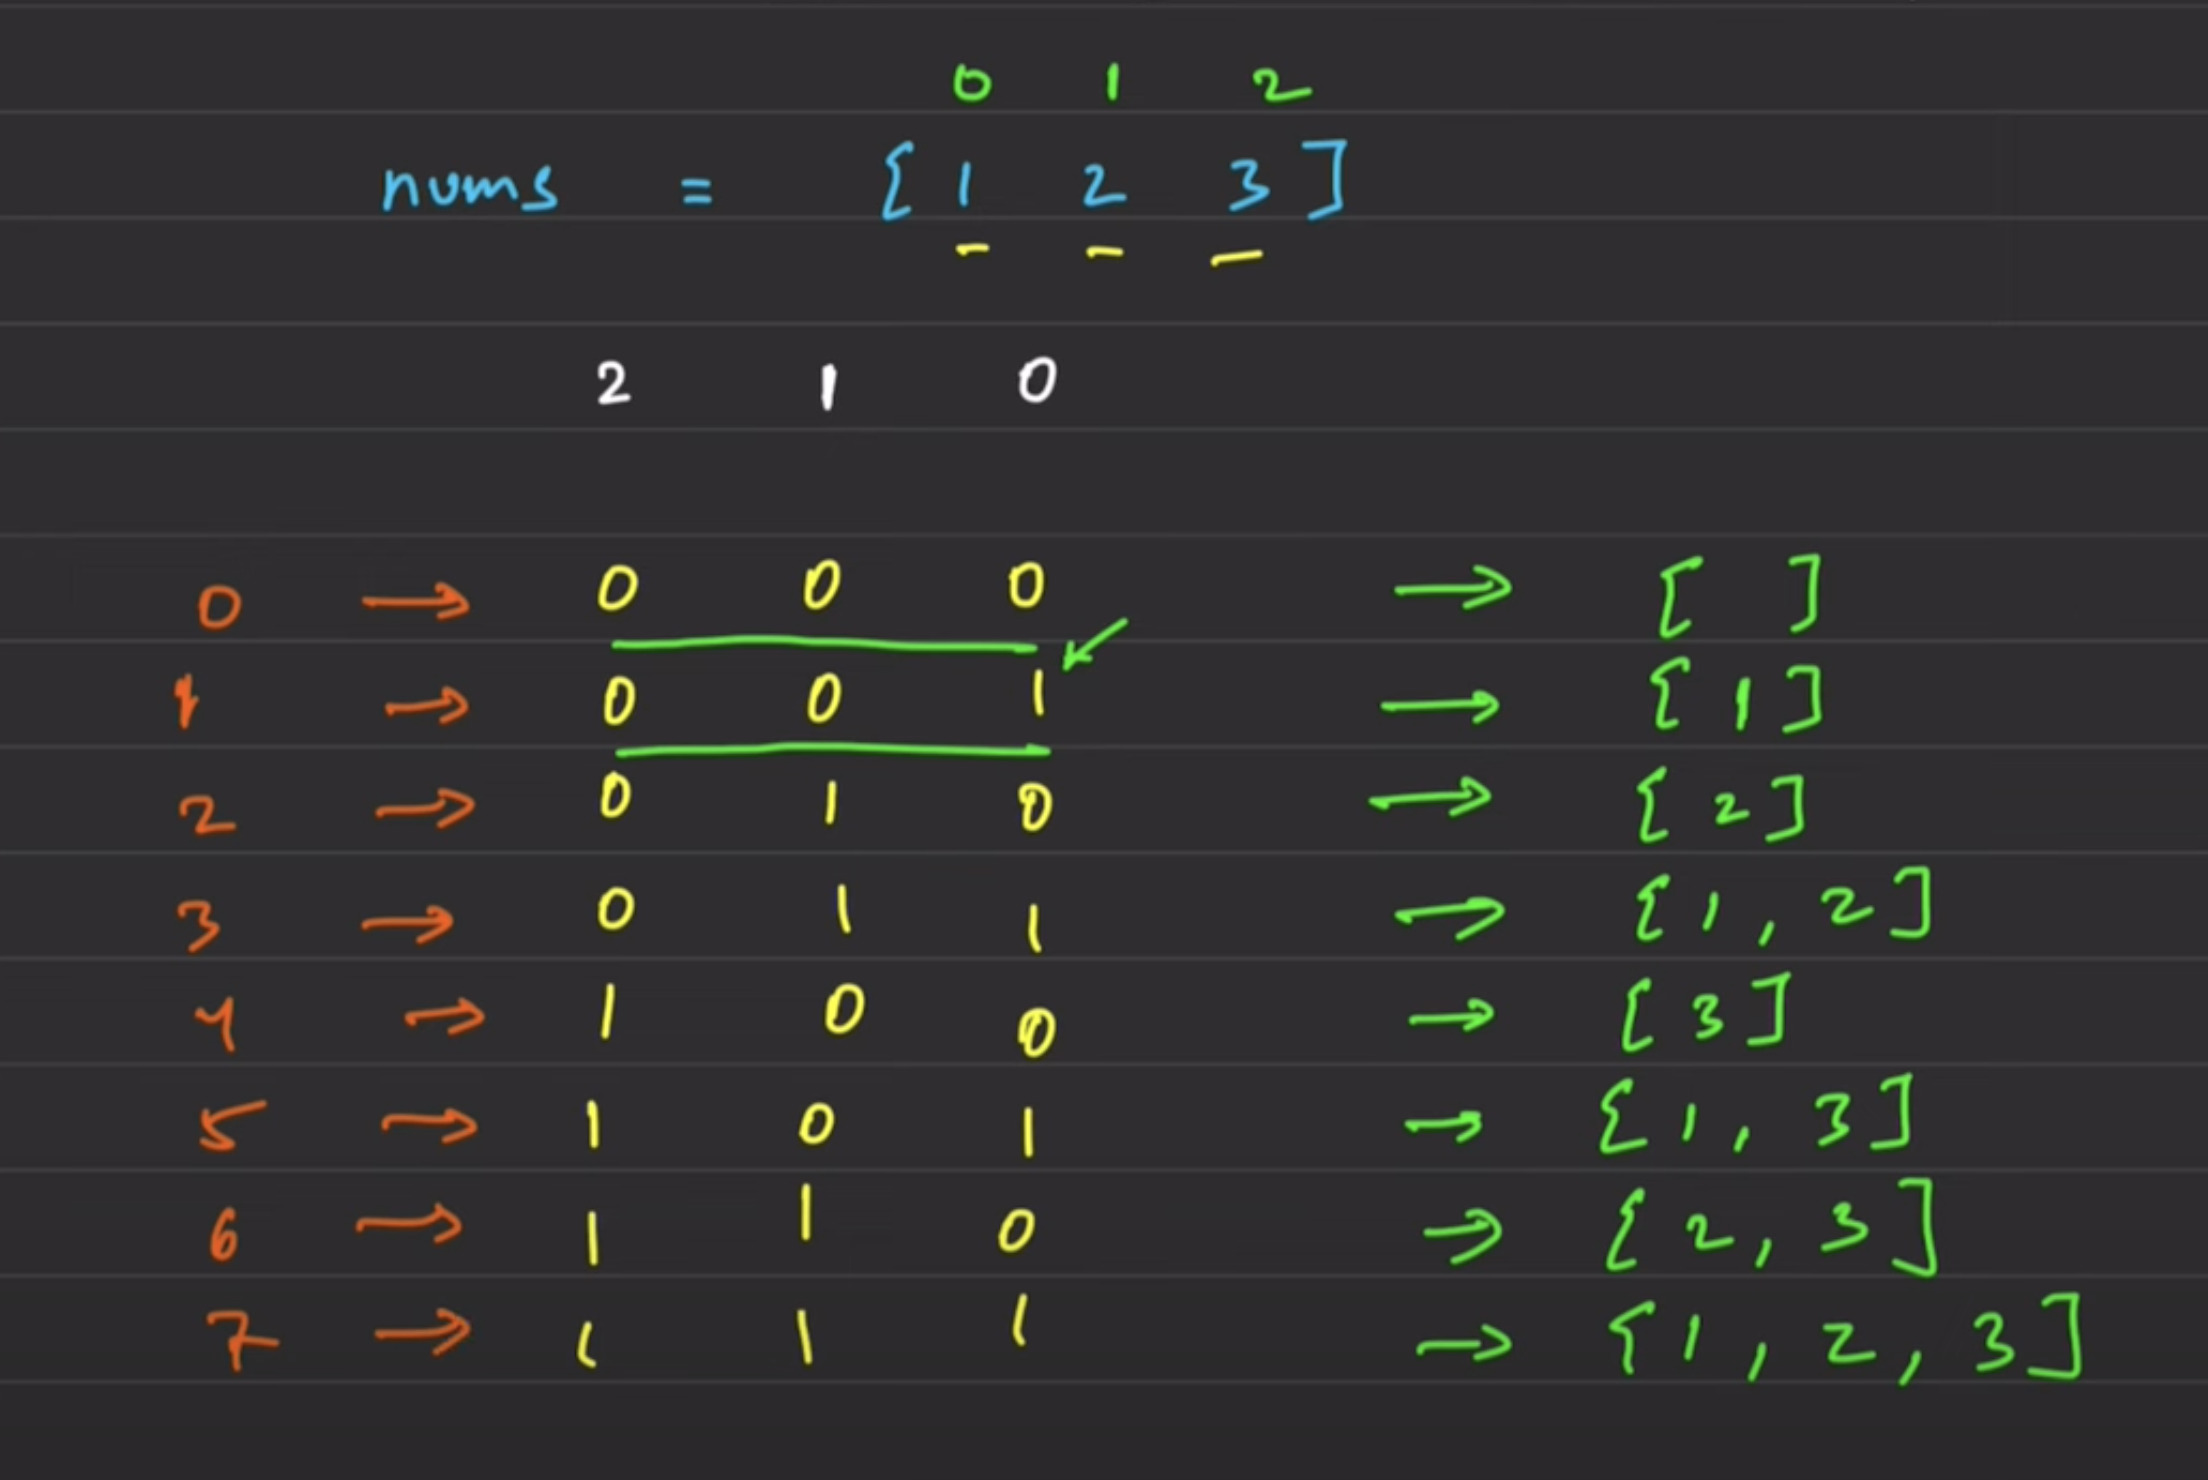 0 1 2
nums = [ 1 2 3 ]
2 1 0
0 → 0 0 0 → [ ]
1 → 0 0 1 → [ 1 ]
2 → 0 1 0 → [ 2 ]
3 → 0 1 1 → [ 1 , 2 ]
4 → 1 0 0 → [ 3 ]
5 → 1 0 1 → [ 1 , 3 ]
6 → 1 1 0 → [ 2 , 3 ]
7 → 1 1 1 → [ 1 , 2 , 3 ]